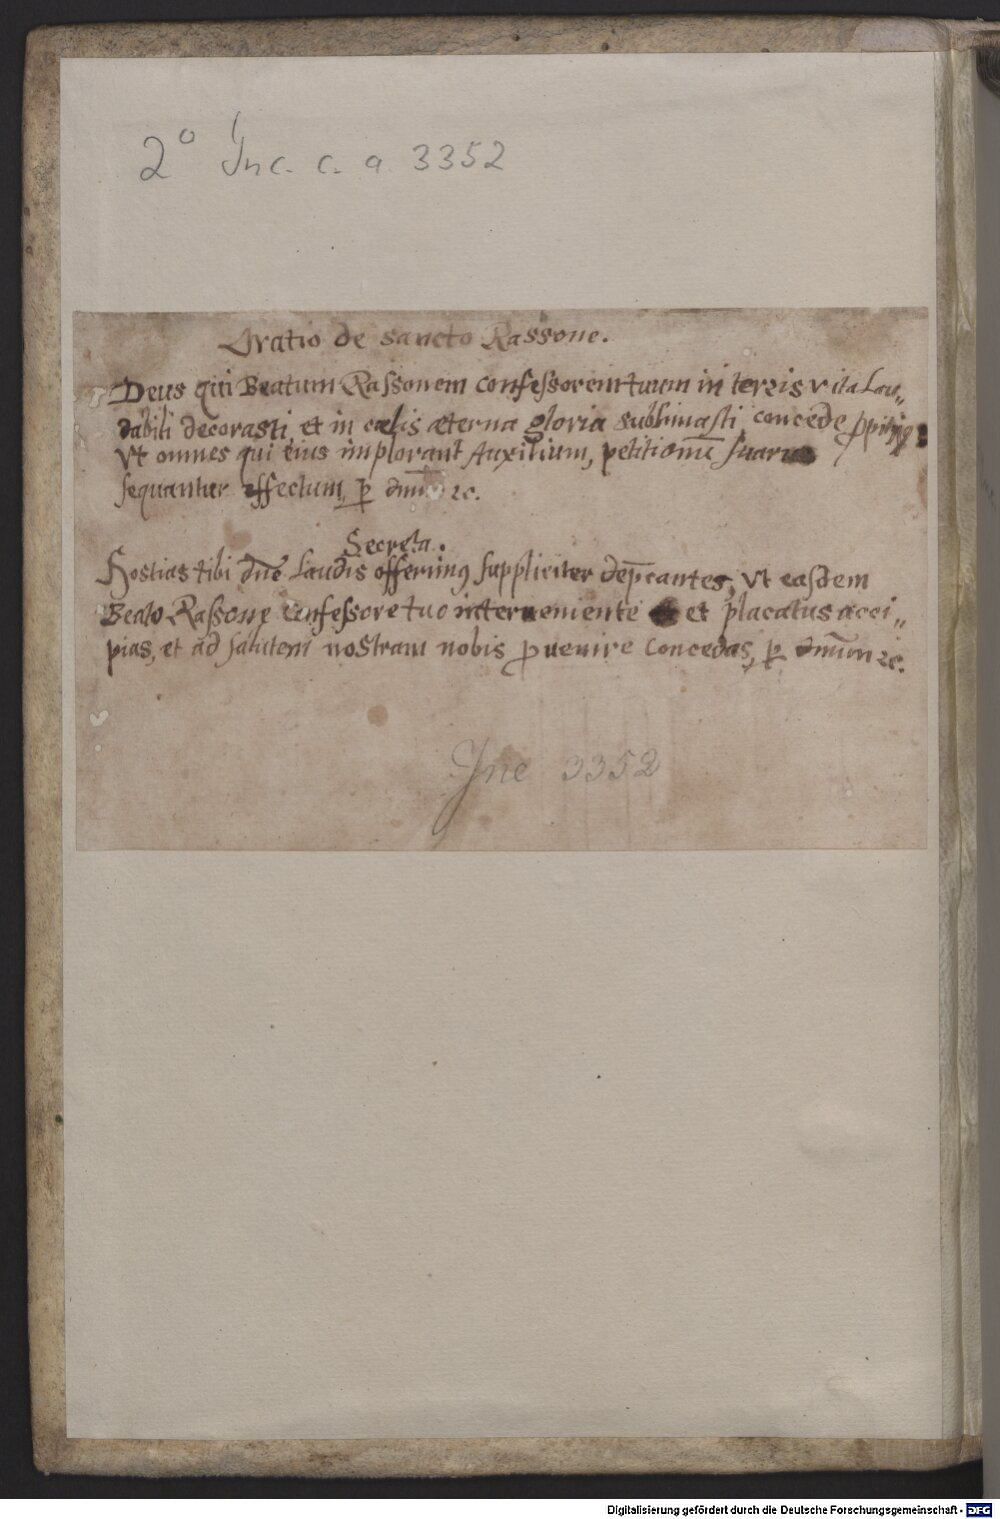 2° Inc. c. a. 3352
Oratio de sancto Rassone.
Deus qui Beatum Rassonem confessorem tuum in terris vita Lau„
dabili decorasti, et in cœlis æterna gloria sublimasti, concede
Vt omnes qui eius implorant Auxilium, petitionũ suarum
sequantur effectum, ꝑ dnm̄ ꝛc.
Secreta.
Hostias tibi dñe laudis offerimꝯ suppliciter dep̄cantes, vt easdem
Beato Rassone confessore tuo interueniente et placatus acci„
pias, et ad salutem nostram nobis ꝓuenire concedas, ꝑ dnm̄ ꝛc.
Inc 3352
Digitalisierung gefördert durch die Deutsche Forschungsgemeinschaft - DFG